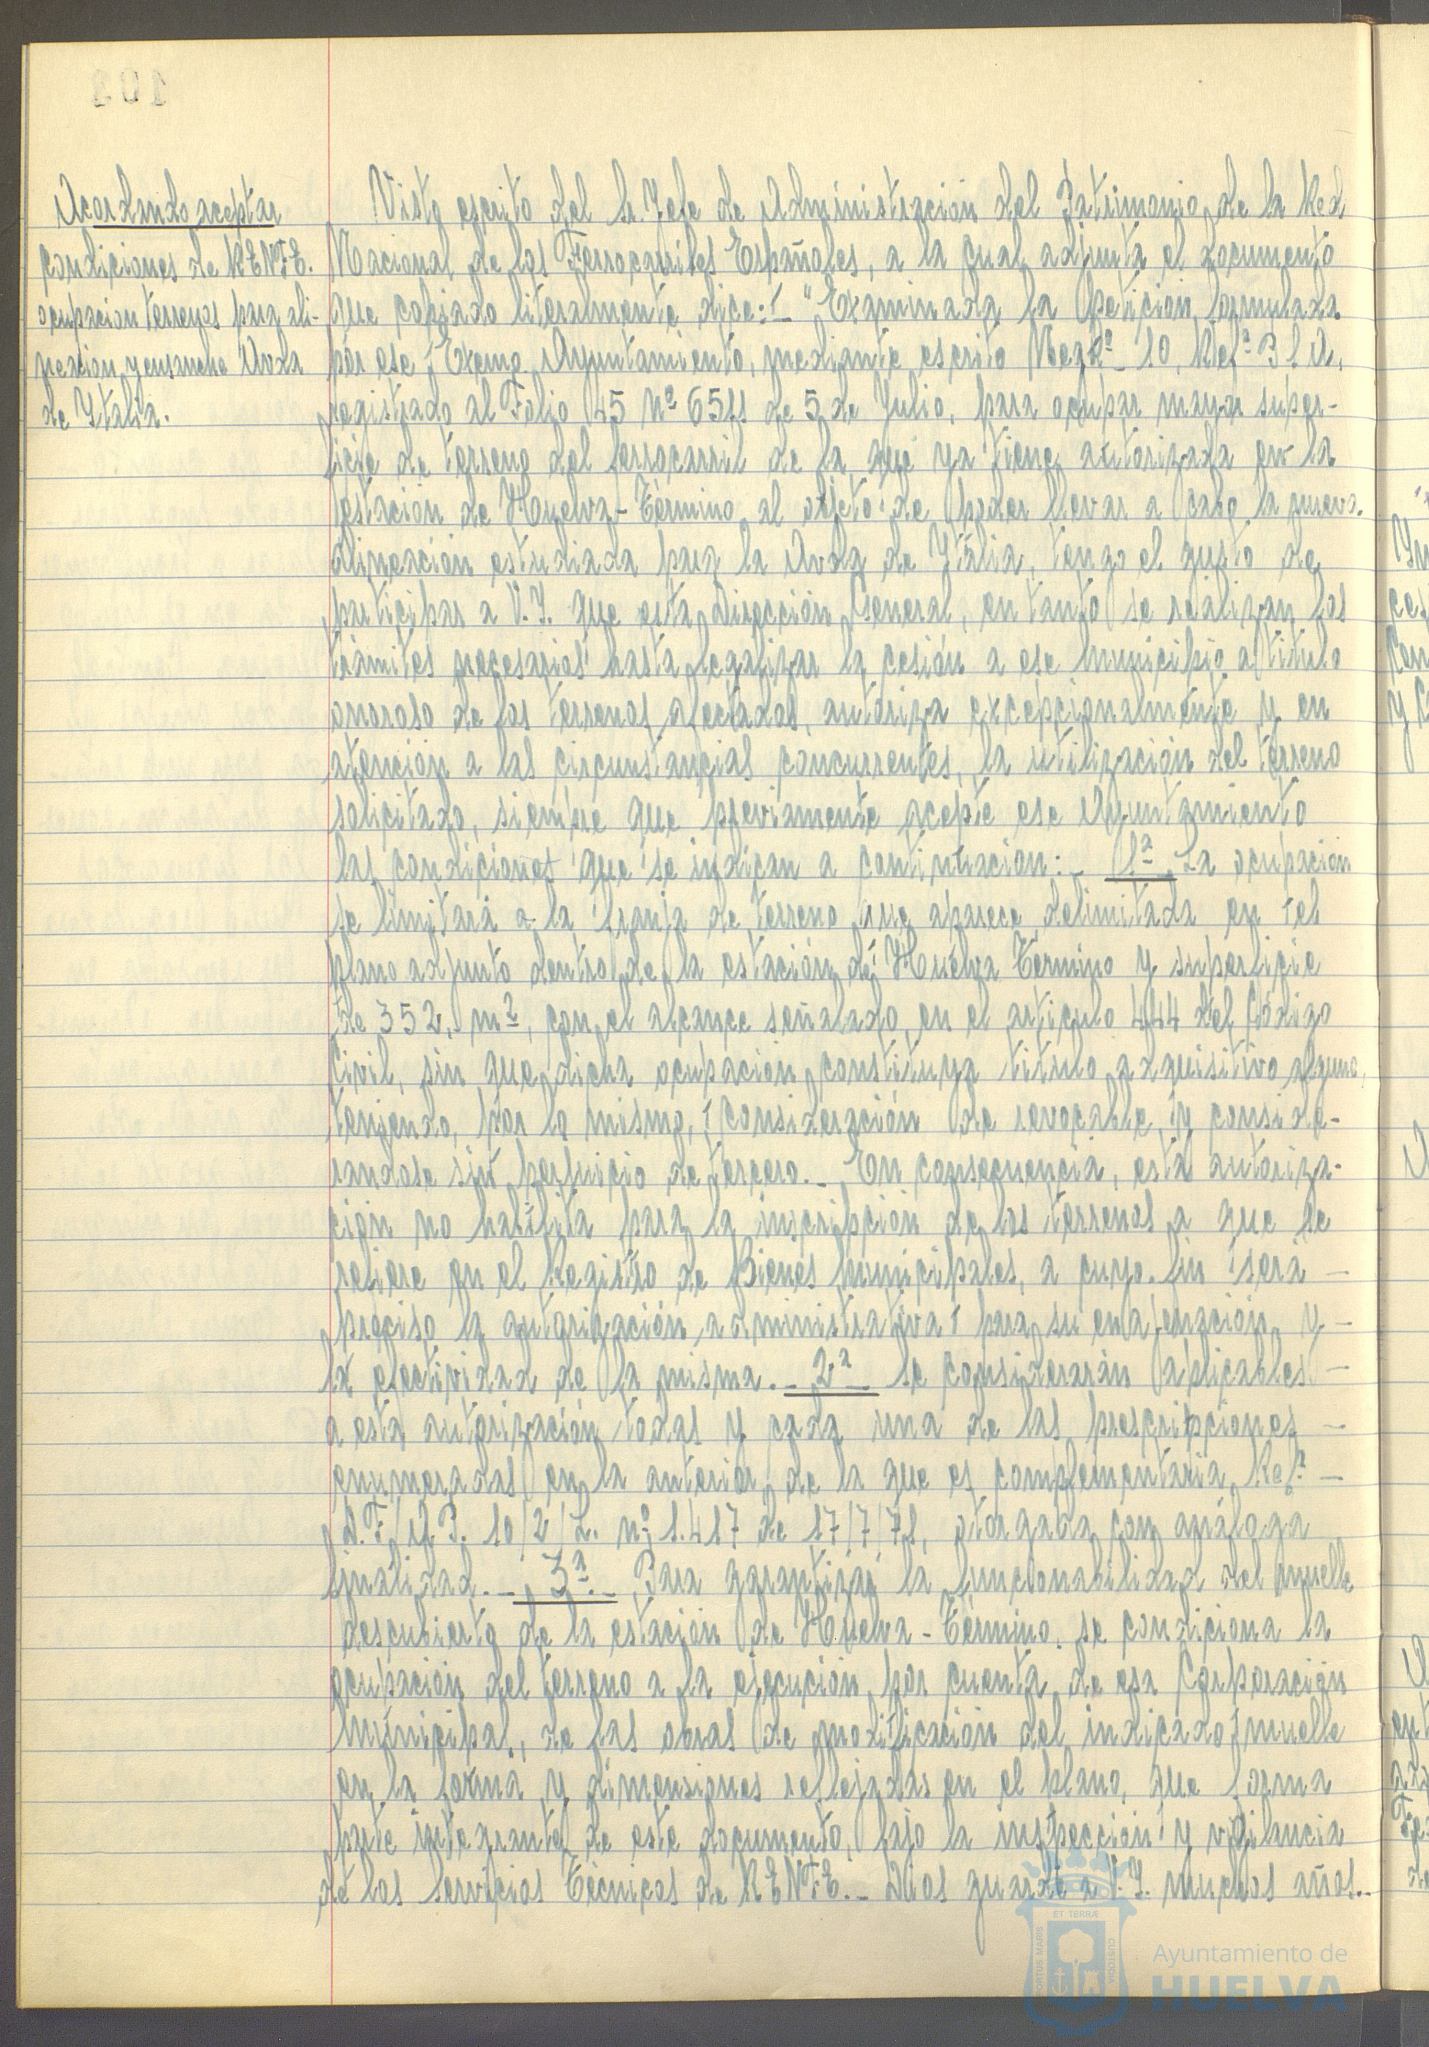 Acordando aceptar
condiciones de RENFE.
ocupacion terrenos para ali-
neación y ensanche Avda
de Italia.
Visto escrito del Sr Jefe de Administración del Patrimonio de la Red
Nacional de los Ferrocarriles Españoles, a la cual adjunta el documento
que copiado literalmente dice:- "Examinada la petición formulada
por ese Excmo Ayuntamiento, mediante escrito 10, Refª
registrado al Folio 45 Nº de 5 de Julio, para ocupar mayor super-
ficie de terreno del ferrocarril de la que ya tiene autorizada en la
estación de Huelva-Término al objeto de poder llevar a cabo la nueva
alineación estudiada para la Avda de Italia, tengo el gusto de
participar a V.I. que esta Dirección General, en tanto se realizan los
trámites necesarios hasta legalizar la cesión a ese Municipio a titulo
oneroso de los terrenos afectados, autoriza excepcionalmente y en
atención a las circunstancias concurrentes, la utilización del terreno
solicitado, siempre que previamente acepte ese Ayuntamiento
las condiciones que se indican a continuación:- 1ª La ocupación
se limitará a la franja de terreno que aparece delimitada en el
plano adjunto dentro de la estación de Huelva Término y superficie
de 352, m², con el alcance señalado en el articulo 444 del Código
Civil, sin que dicha ocupación constituya titulo adquisitivo alguno,
teniendo, por lo mismo, consideración de revocable y conside-
randose sin perjuicio de tercero.- En consecuencia, esta autoriza-
ción no habilita para la inscripción de los terrenos a que se
refiere en el Registro de Bienes Municipales, a cuyo fin será -
preciso la autorización administrativa para su enajenación y -
la efectividad de la misma.- 2ª Se considerarán aplicables -
a esta autorización todas y cada una de las prescripciones -
enumeradas en la anterior de la que es complementaria Refª -
10/2/Z. nº 1.417 de 17/7/71, otorgada con análoga
finalidad.- 3ª.- Para garantizar la funcionabilidad del muelle
descubierto de la estación de Huelva-Término, se condiciona la
ocupación del terreno a la ejecución por cuenta de esa Corporación
Municipal, de las obras de modificación del indicado muelle
en la forma y dimensiones reflejadas en el plano, que forma
parte integrante de este documento, bajo la inspección y vigilancia
de los Servicios Técnicos de RENFE.- Dios guarde a V.I. muchos años.-
PORTUS MARIS
ET TERRAE
CUSTODIA
Ayuntamiento de
HUELVA